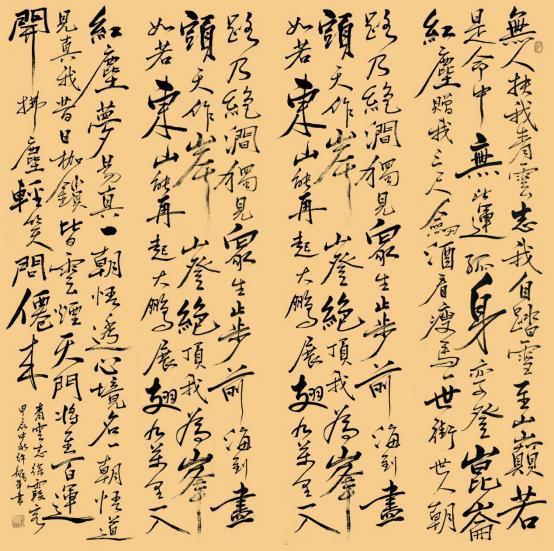 無人扶我青雲志我自踏雪至山巔若
是命中無此運孤身亦登崑崙
紅塵贈我三尺劍酒看瘦馬一世街世人朝
路乃絕澗獨見眾生止步前海到盡
頭天作岸山登絕頂我為峯
如若東山能再起大鵬展翅九萬里一入
路乃絕澗獨見眾生止步前海到盡
頭天作岸山登絕頂我為峯
如若東山能再起大鵬展翅九萬里一入
紅塵夢易真一朝悟透心境名一朝悟道
見真我昔日枷鎖皆雲煙天門將至百運
開拂塵輕笑問僊來
青雲志徐霞客
甲辰中秋許書